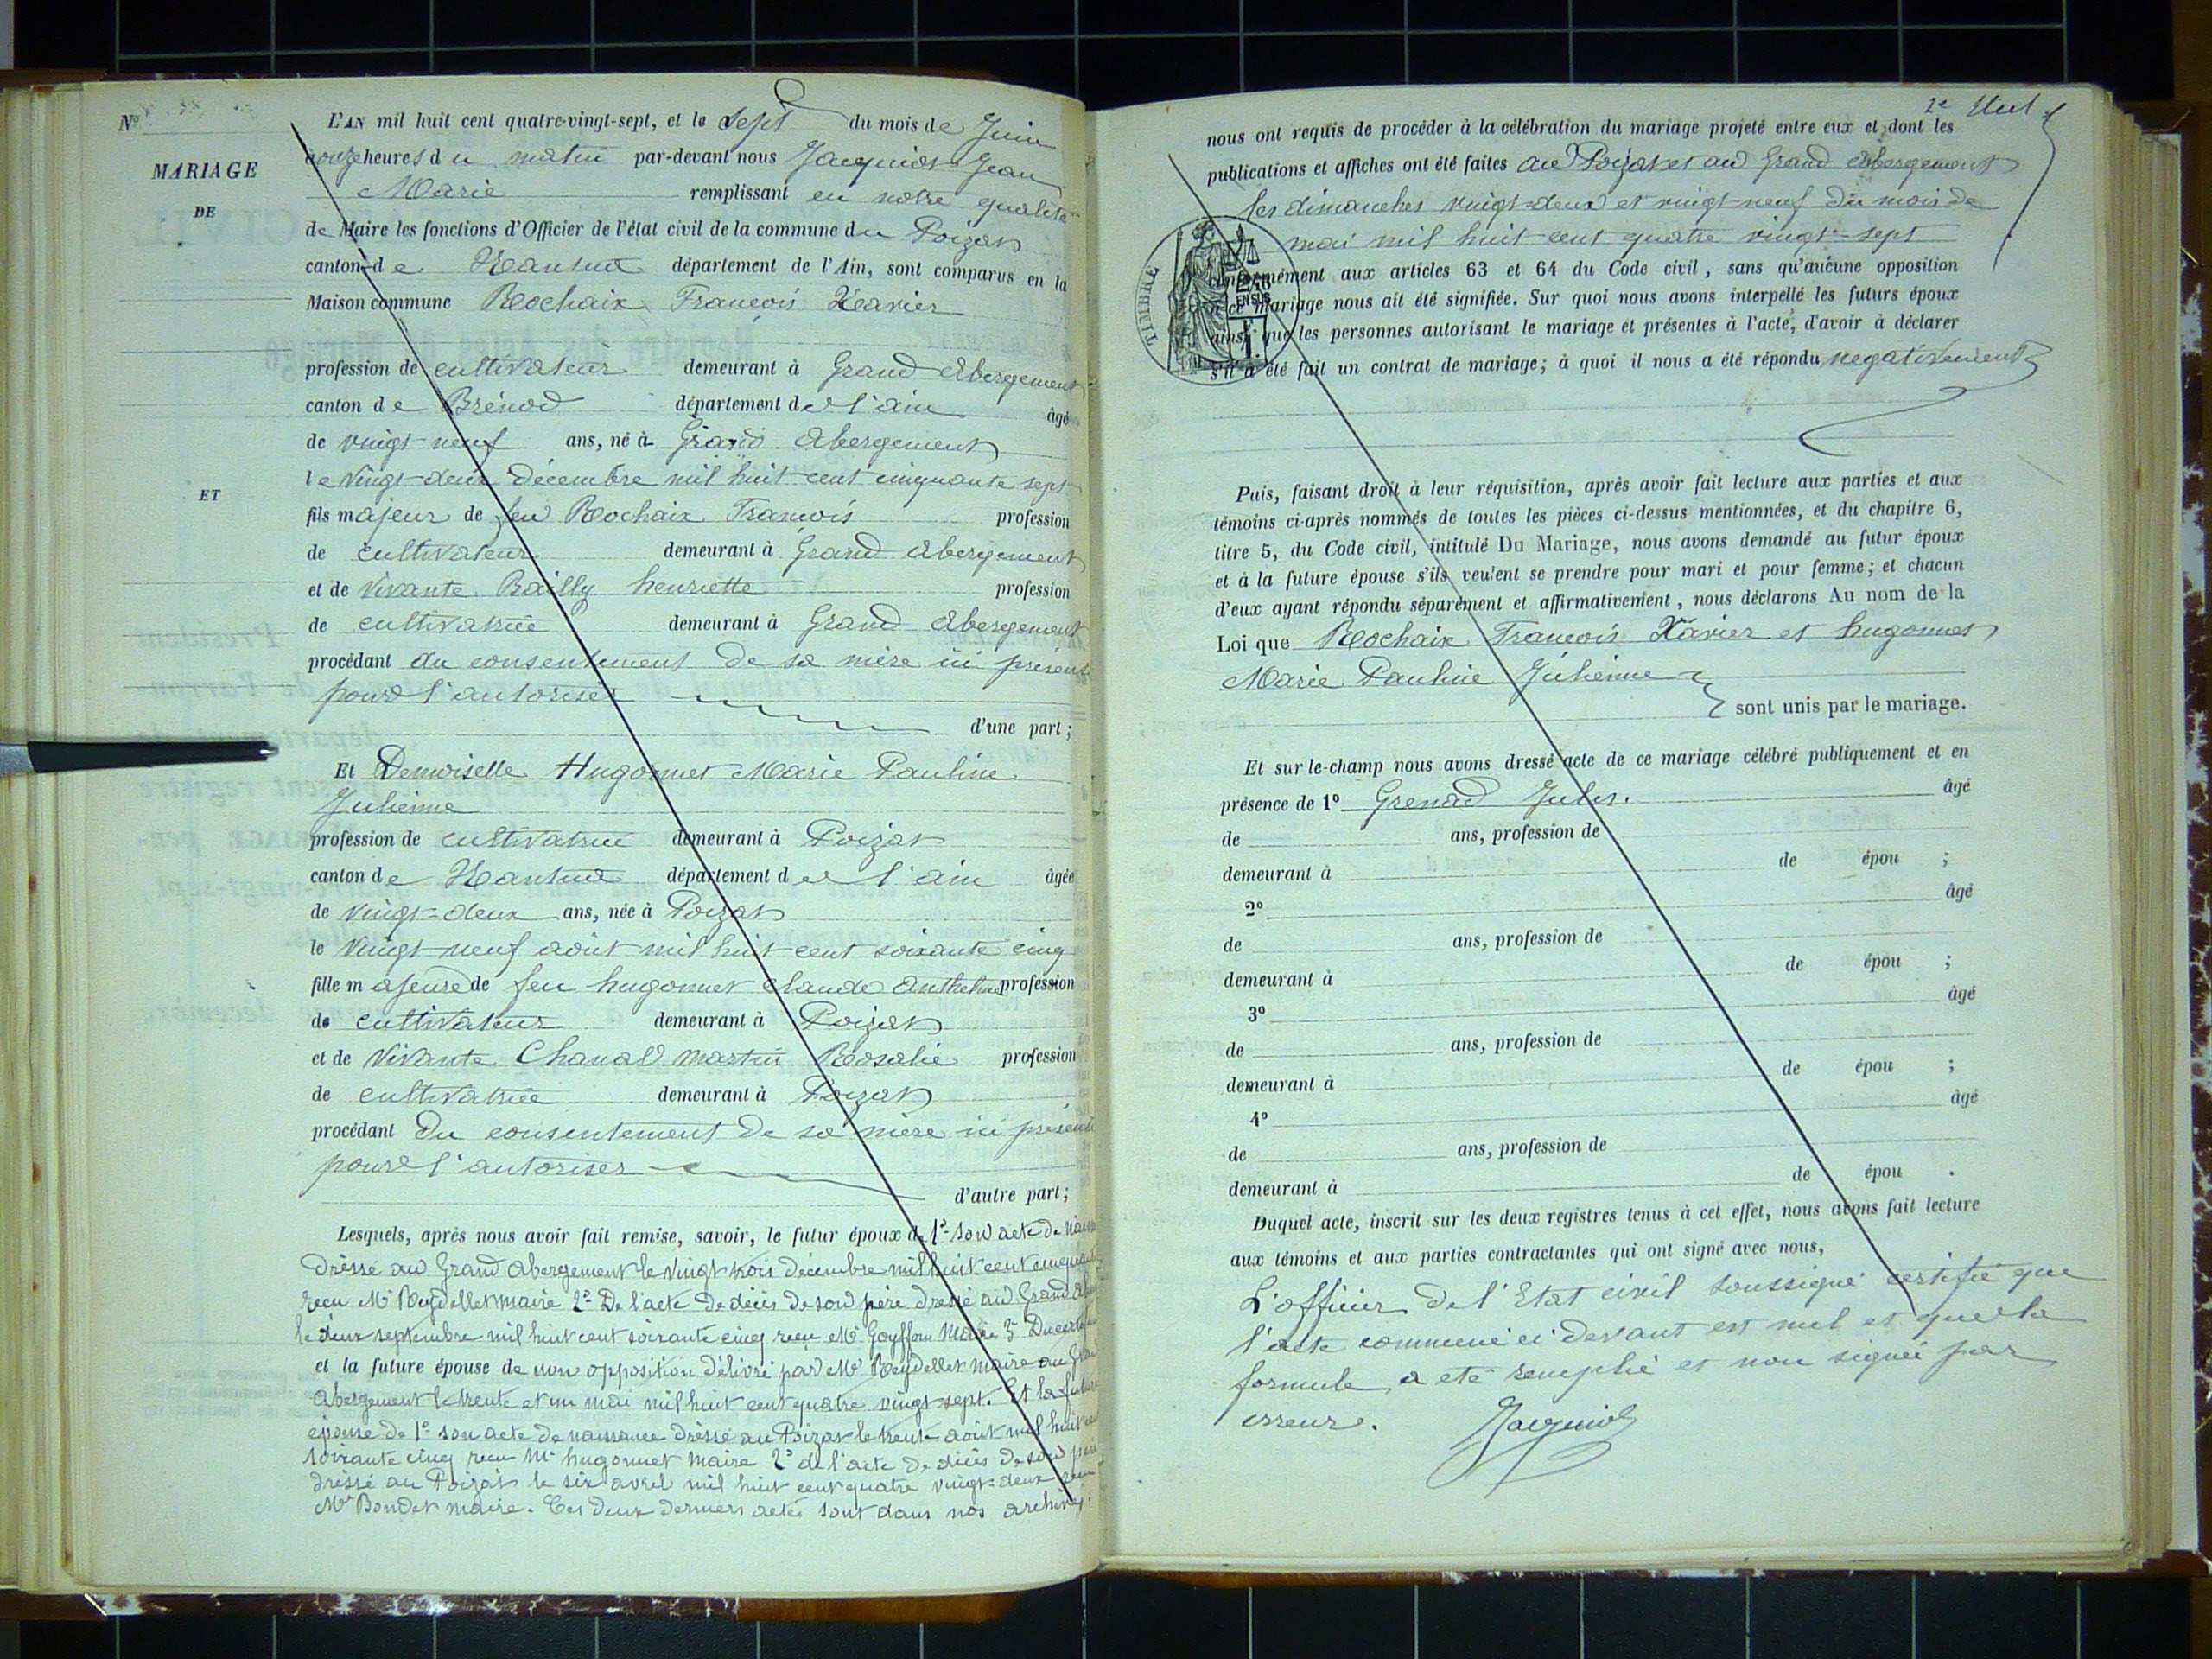 No
MARIAGE
DE
ET
L'AN mil huit cent quatre-vingt-sept, et le sept du mois de Juin
onze heures du matin par-devant nous Jacquiot Jean
Marie remplissant en notre qualité
de Maire les fonctions d'Officier de l'état civil de la commune du Poizat
canton de Nantua département de l'Ain, sont comparus en la
Maison commune Rochaix François Xavier
profession de cultivateur demeurant à Grand Abergement
canton de Brénod département de l'ain âgé
de vingt-neuf ans, né à Grand Abergement
le vingt-deux décembre mil huit cent cinquante sept
fils majeur de feu Rochaix François profession
de cultivateur demeurant à Grand Abergement
et de vivante Bailly henriette profession
de cultivatrice demeurant à Grand Abergement
procédant du consentement de sa mère ici présente
pour l'autoriser
d'une part;
Et Demoiselle Hugonnet Marie Pauline
Julienne
profession de cultivatrice demeurant à Poizat
canton de Nantua département de l'ain âgée
de vingt-deux ans, née à Poizat
le vingt neuf août mil huit cent soixante cinq
fille majeure de feu hugonnet Claude Anthelme profession
de cultivateur demeurant à Poizat
et de vivante Chanal martin Rosalie profession
de cultivatrice demeurant à Poizat
procédant du consentement de sa mère ici présente
pour l'autoriser
d'autre part;
Lesquels, après nous avoir fait remise, savoir, le futur époux de 1º son acte de
dressé au Grand Abergement le vingt trois décembre mil huit cent cinquante
reçu Mr Reydellet maire 2º De l'acte de décès de son père dressé au Grand
le deux septembre mil huit cent soixante cinq reçu Mr Goyffon Maire 3º Du
et la future épouse de non opposition délivré par Mr Reydellet maire au Grand
Abergement le trente et un mai mil huit cent quatre vingt sept. Et la future
épouse de 1º son acte de naissance dressé au Poizat le trente août mil huit cent
soixante cinq reçu Mr hugonnet maire 2º de l'acte de décès de son père
dressé au Poizat le six avril mil huit cent quatre vingt-deux reçu
Mr Bondet maire. Ces deux derniers actes sont dans nos archives.
nous ont requis de procéder à la célébration du mariage projeté entre eux et dont les
publications et affiches ont été faites au Poizat et au Grand Abergement
les dimanches vingt-deux et vingt-neuf du mois de
mai mil huit cent quatre vingt-sept
TIMBRE
conformément aux articles 63 et 64 du Code civil, sans qu'aucune opposition
à ce mariage nous ait été signifiée. Sur quoi nous avons interpellé les futurs époux
ainsi que les personnes autorisant le mariage et présentes à l'acte, d'avoir à déclarer
s'il a été fait un contrat de mariage; à quoi il nous a été répondu negativement
Puis, faisant droit à leur réquisition, après avoir fait lecture aux parties et aux
témoins ci-après nommés de toutes les pièces ci-dessus mentionnées, et du chapitre 6,
titre 5, du Code civil, intitulé Du Mariage, nous avons demandé au futur époux
et à la future épouse s'ils veulent se prendre pour mari et pour femme; et chacun
d'eux ayant répondu séparément et affirmativement, nous déclarons Au nom de la
Loi que Rochaix François Xavier et hugonnet
Marie Pauline Julienne
sont unis par le mariage.
Et sur-le-champ nous avons dressé acte de ce mariage célébré publiquement et en
présence de 1º Grenad Jules. âgé
de ans, profession de
demeurant à de épou ;
2º âgé
de ans, profession de
demeurant à de épou ;
3º âgé
de ans, profession de
demeurant à de épou ;
4º âgé
de ans, profession de
demeurant à de épou .
Duquel acte, inscrit sur les deux registres tenus à cet effet, nous avons fait lecture
aux témoins et aux parties contractantes qui ont signé avec nous,
L'officier de l'Etat civil soussigné certifie que
l'acte commencé ci devant est nul et que la
formule a été remplie et non signée par
erreur. Jacquiot